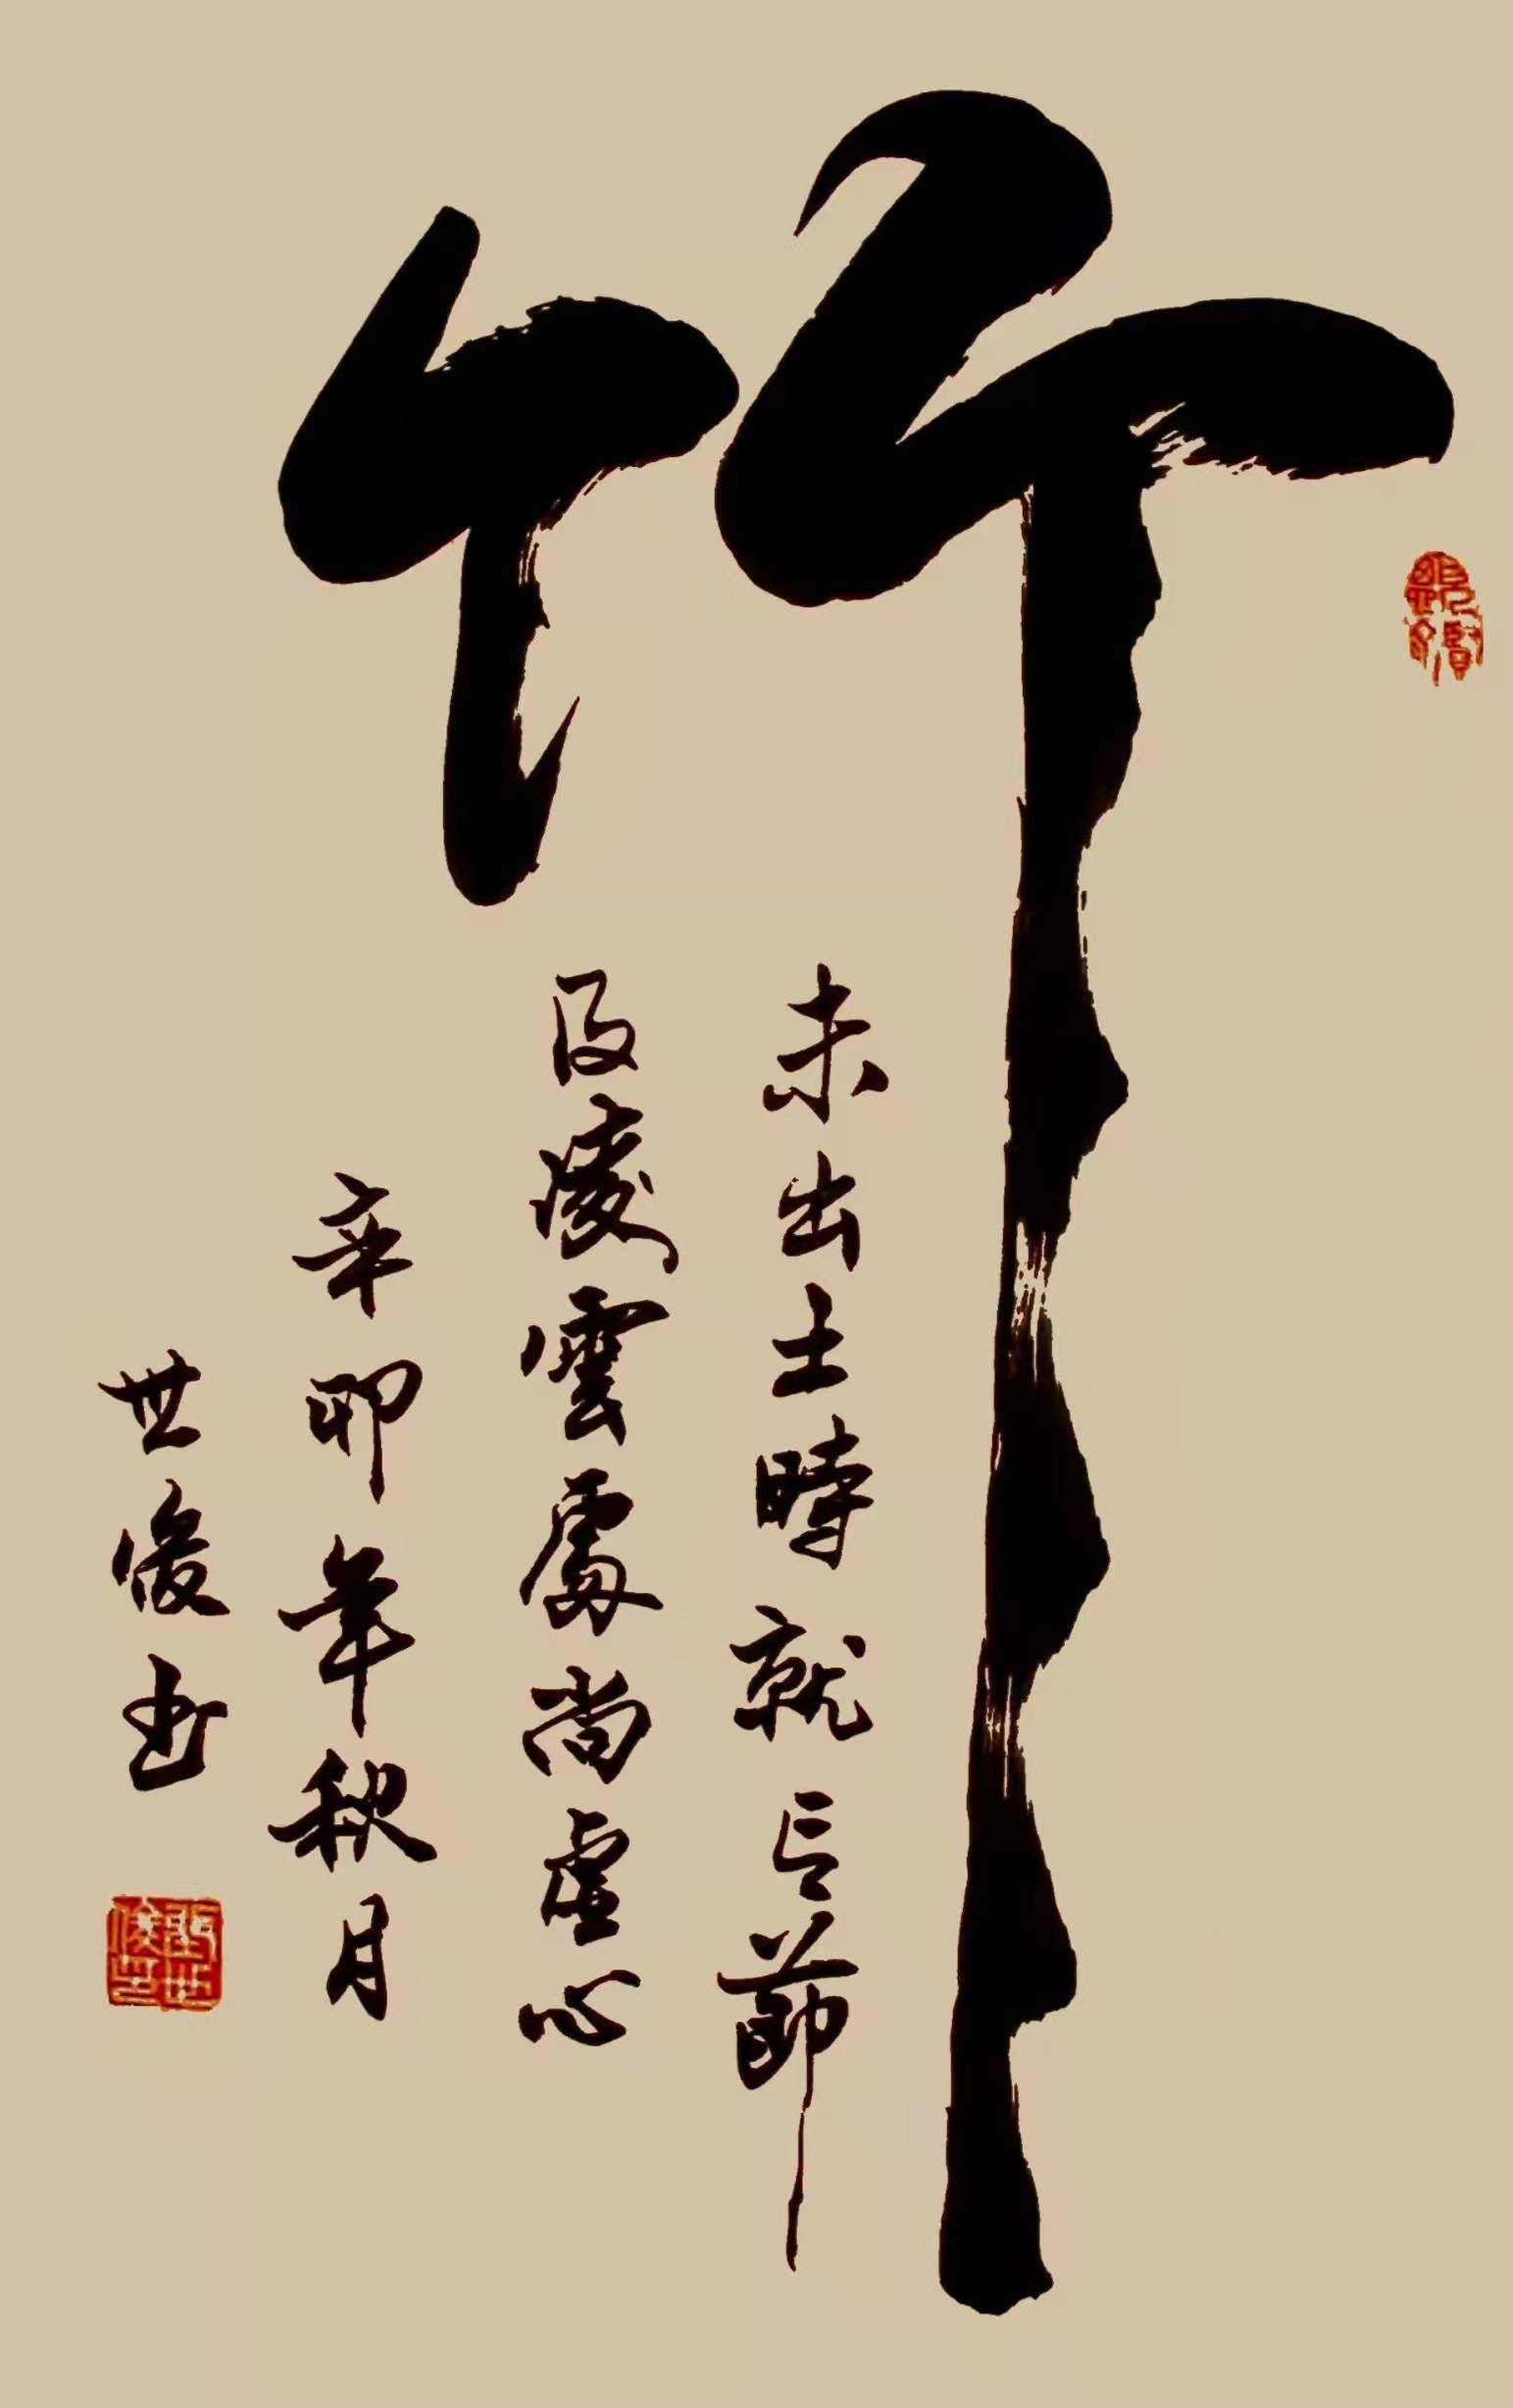 竹
未出土時就言節
及凌雲處尚虛心
辛卯年秋月
世俊書